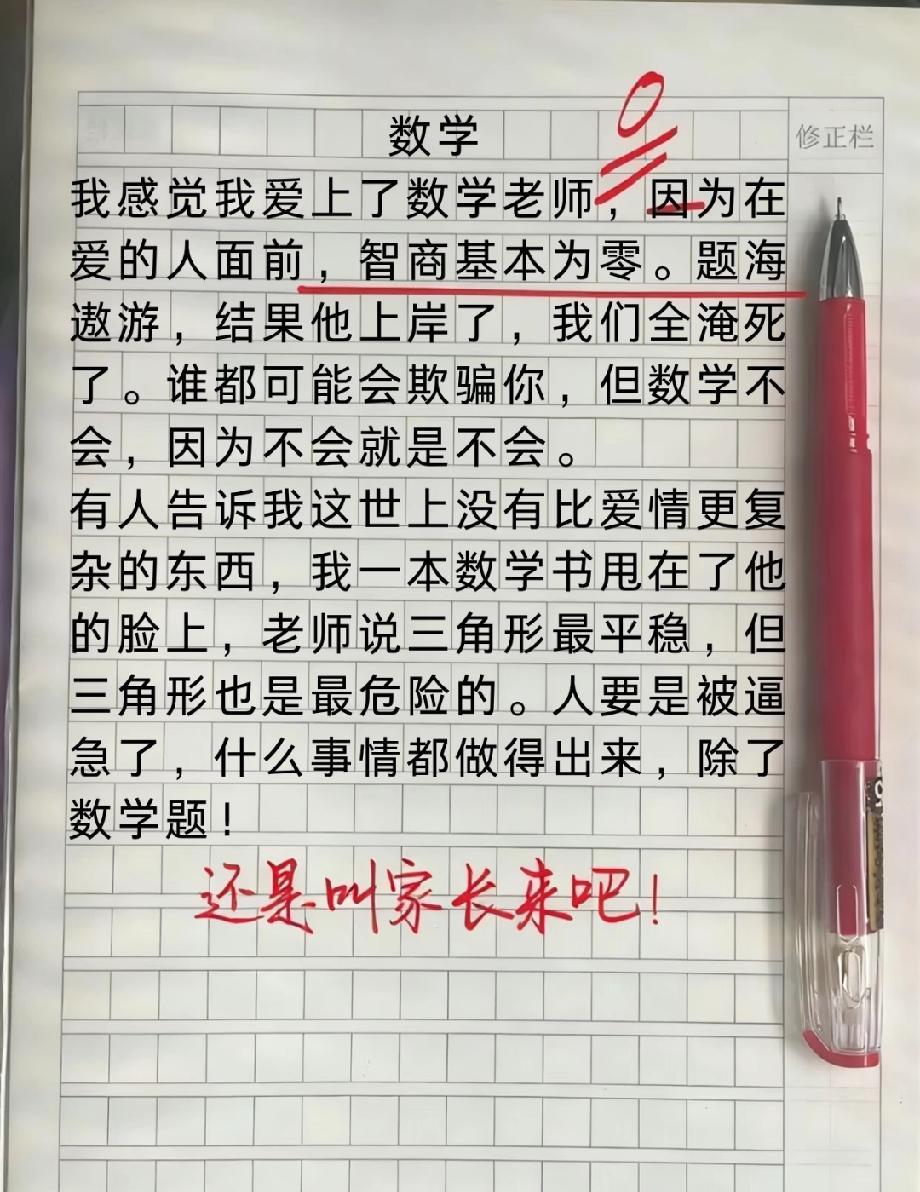 数学
修正栏
我感觉我爱上了数学老师，因为在
爱的人面前，智商基本为零。题海
遨游，结果他上岸了，我们全淹死
了。谁都可能会欺骗你，但数学不
会，因为不会就是不会。
有人告诉我这世上没有比爱情更复
杂的东西，我一本数学书甩在了他
的脸上，老师说三角形最平稳，但
三角形也是最危险的。人要是被逼
急了，什么事情都做得出来，除了
数学题！
还是叫家长来吧！
0